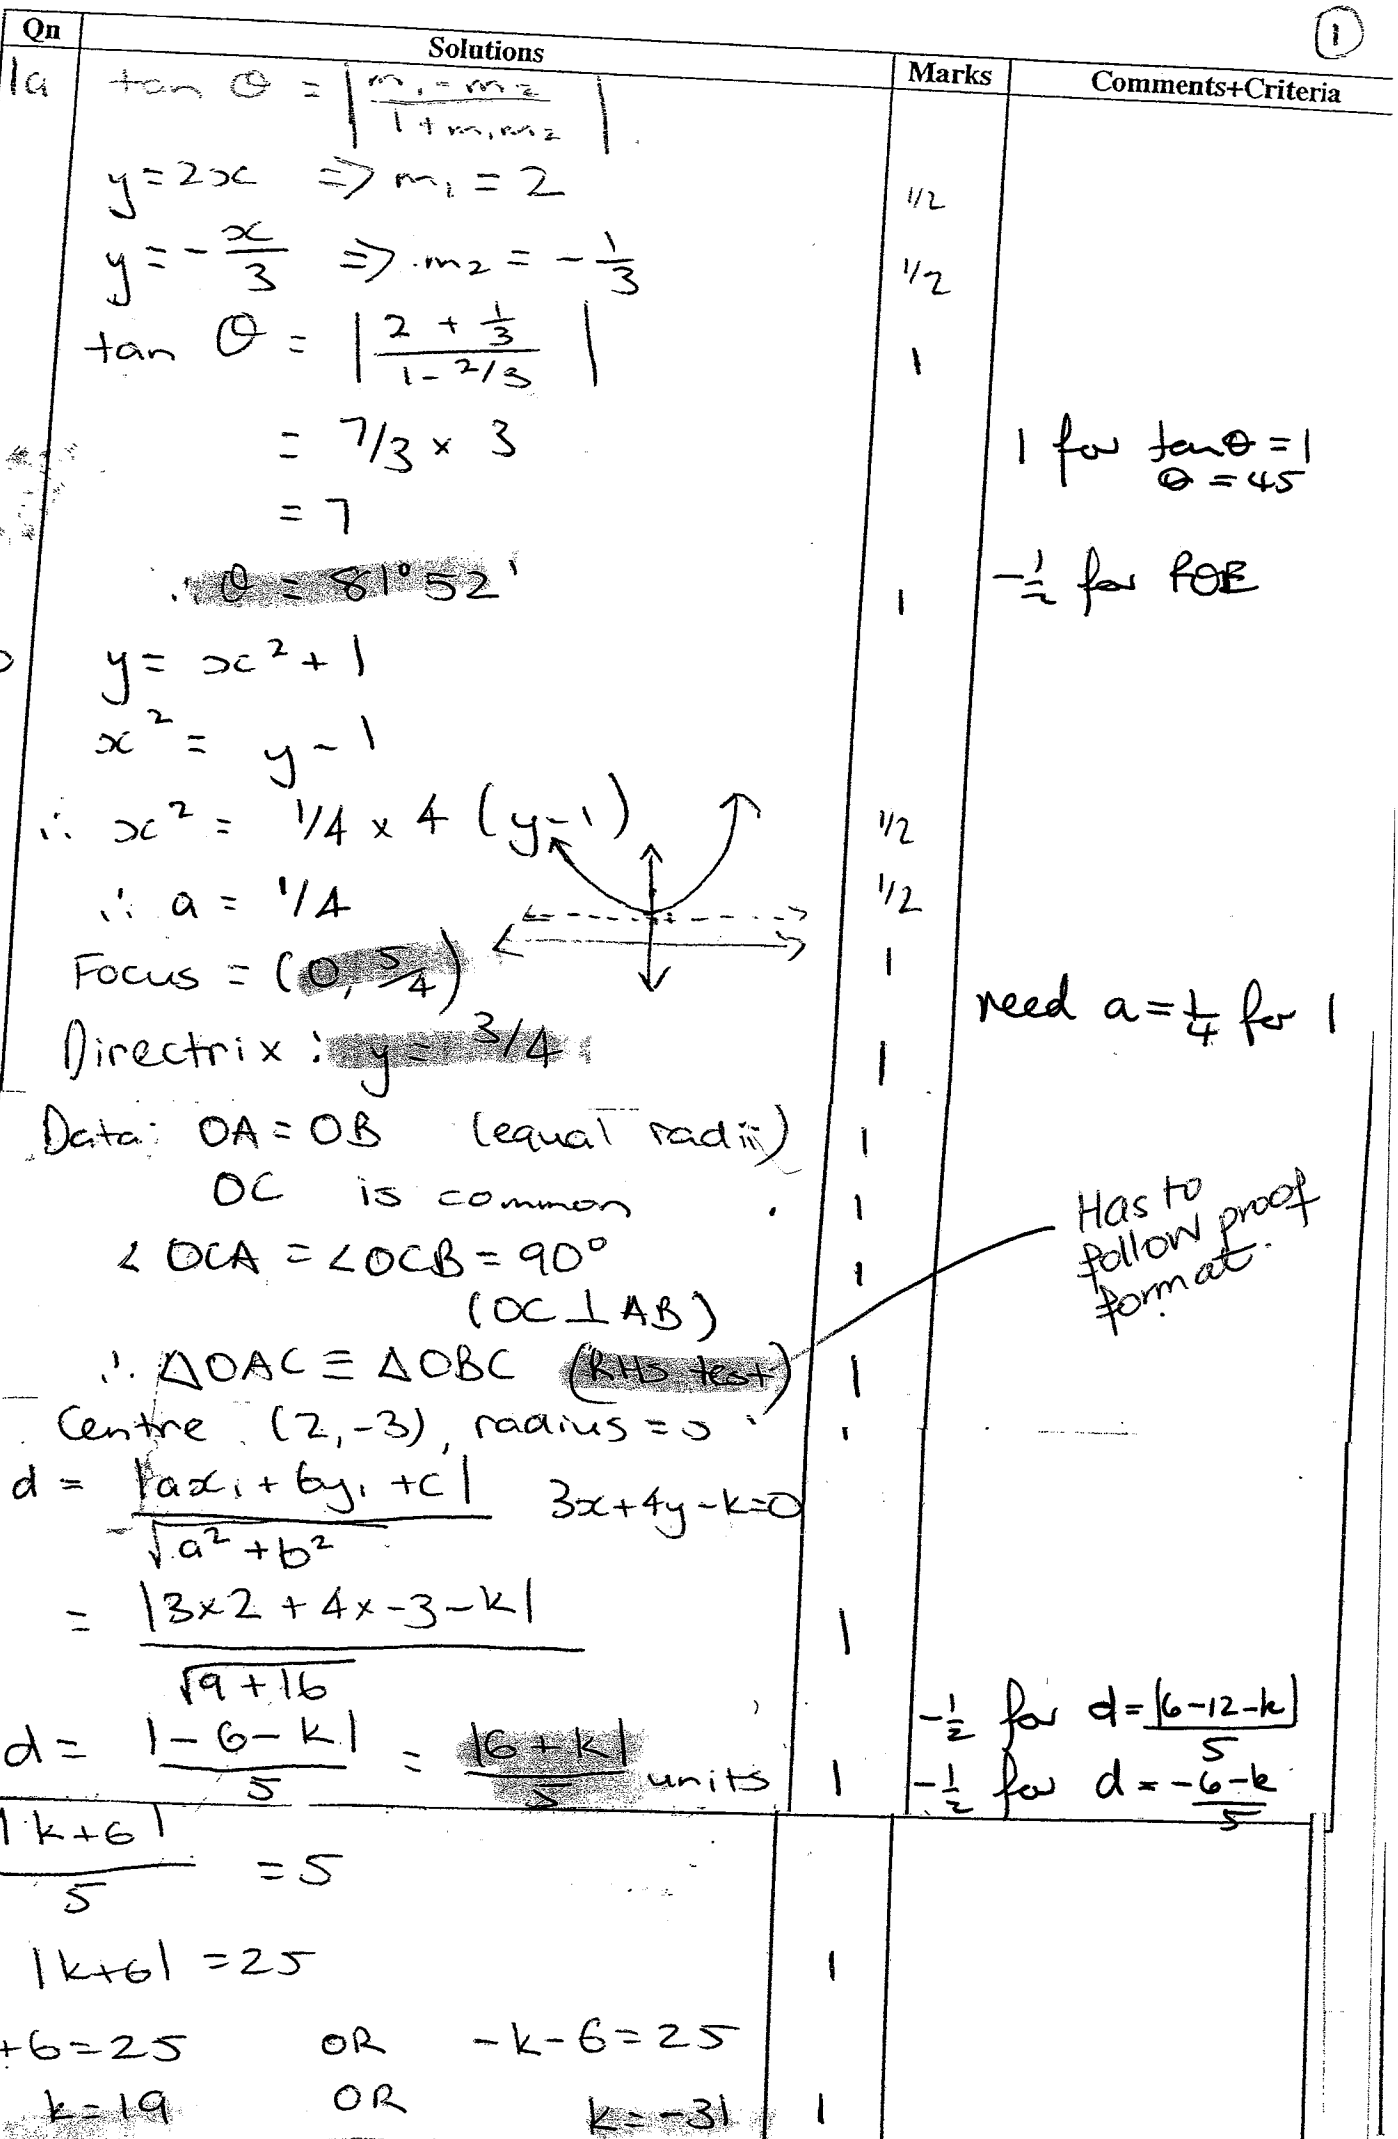 ①
Qn Solutions Marks Comments+Criteria
1a tan θ = |m₁-m₂ / 1+m₁m₂|
y=2x ⇒ m₁ = 2 1/2
y=-x/3 ⇒ m₂ = -1/3 1/2
tan θ = |2 + 1/3 / 1-2/3| 1
= 7/3 × 3 1 for tanθ=1
θ=45
= 7
∴ θ = 81°52' 1 -1/2 for ROE
y= x²+1
x² = y-1
∴ x² = 1/4 × 4 (y-1) 1/2
∴ a = 1/4 1/2
Focus = (0, 5/4) 1 need a=1/4 for 1
Directrix: y= 3/4 1
Data: OA=OB (equal radii) 1
OC is common 1
∠OCA = ∠OCB = 90° 1
(OC⊥AB)
∴ ΔOAC ≡ ΔOBC (RHS test) 1
Has to
follow proof
format.
Centre (2,-3), radius = 5 1
d = |ax₁+by₁+c| / √a²+b² 3x+4y-k=0
= |3×2 + 4×-3-k| / √9+16 1
d = |-6-k| / 5 = |6+k| / 5 units 1
-1/2 for d=|6-12-k| / 5
-1/2 for d=-6-k / 5
|k+6| / 5 = 5
|k+6| = 25 1
+6=25 OR -k-6=25
k=19 OR k=-31 1